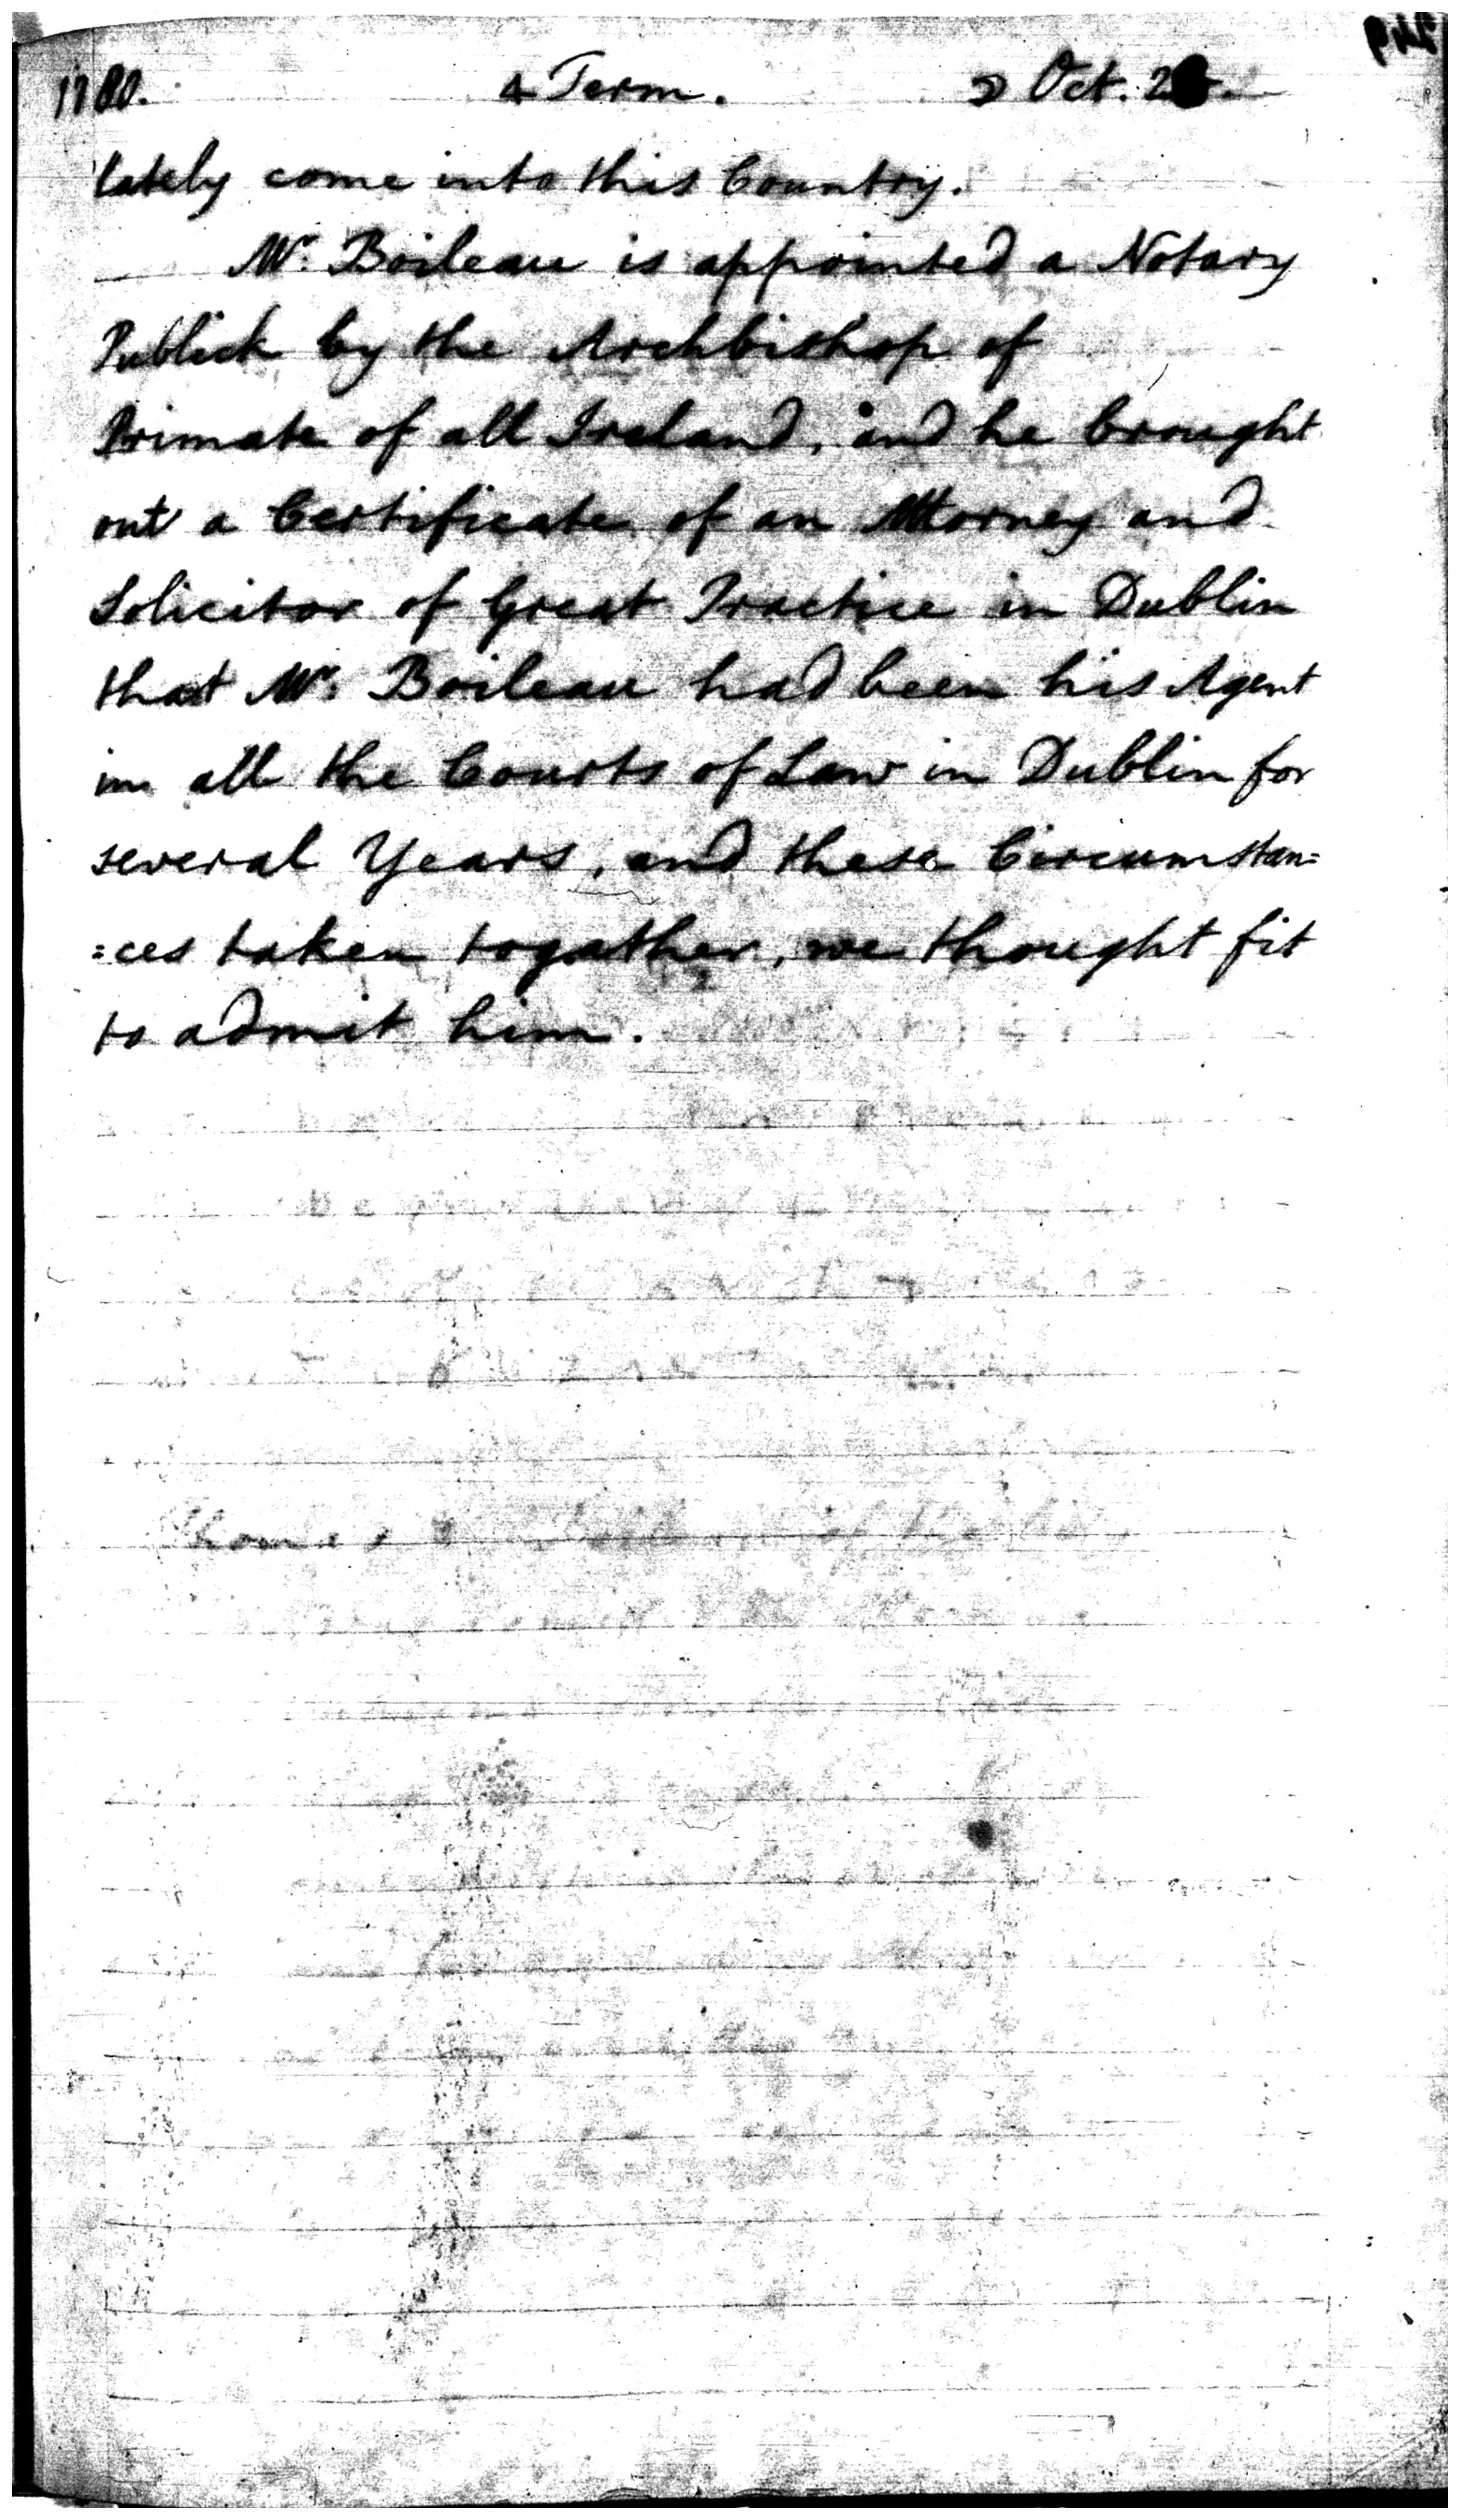 1780. 4 Term. Oct. 2
lately come into this Country.
Mr. Boileau is appointed a Notary
Publick by the Archbishop of
Primate of all Ireland, and he brought
out a Certificate of an Attorney and
Solicitor of Great Practice in Dublin
that Mr. Boileau had been his Agent
in all the Courts of Law in Dublin for
several Years, and these Circumstan=
=ces taken together, we thought fit
to admit him.